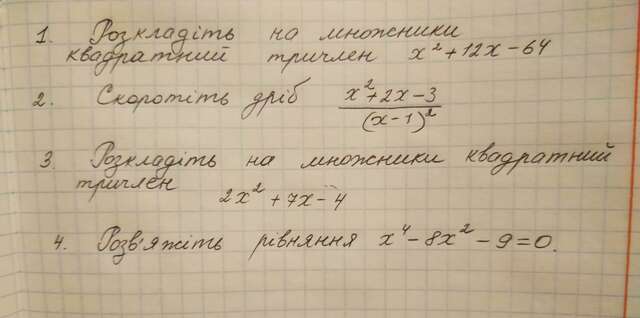 1. Розкладіть на множники
квадратний тричлен x² + 12x − 64
2. Скоротіть дріб (x² + 2x − 3)/(x − 1)²
3. Розкладіть на множники квадратний
тричлен
2x² + 7x − 4
4. Розв'яжіть рівняння x⁴ − 8x² − 9 = 0.